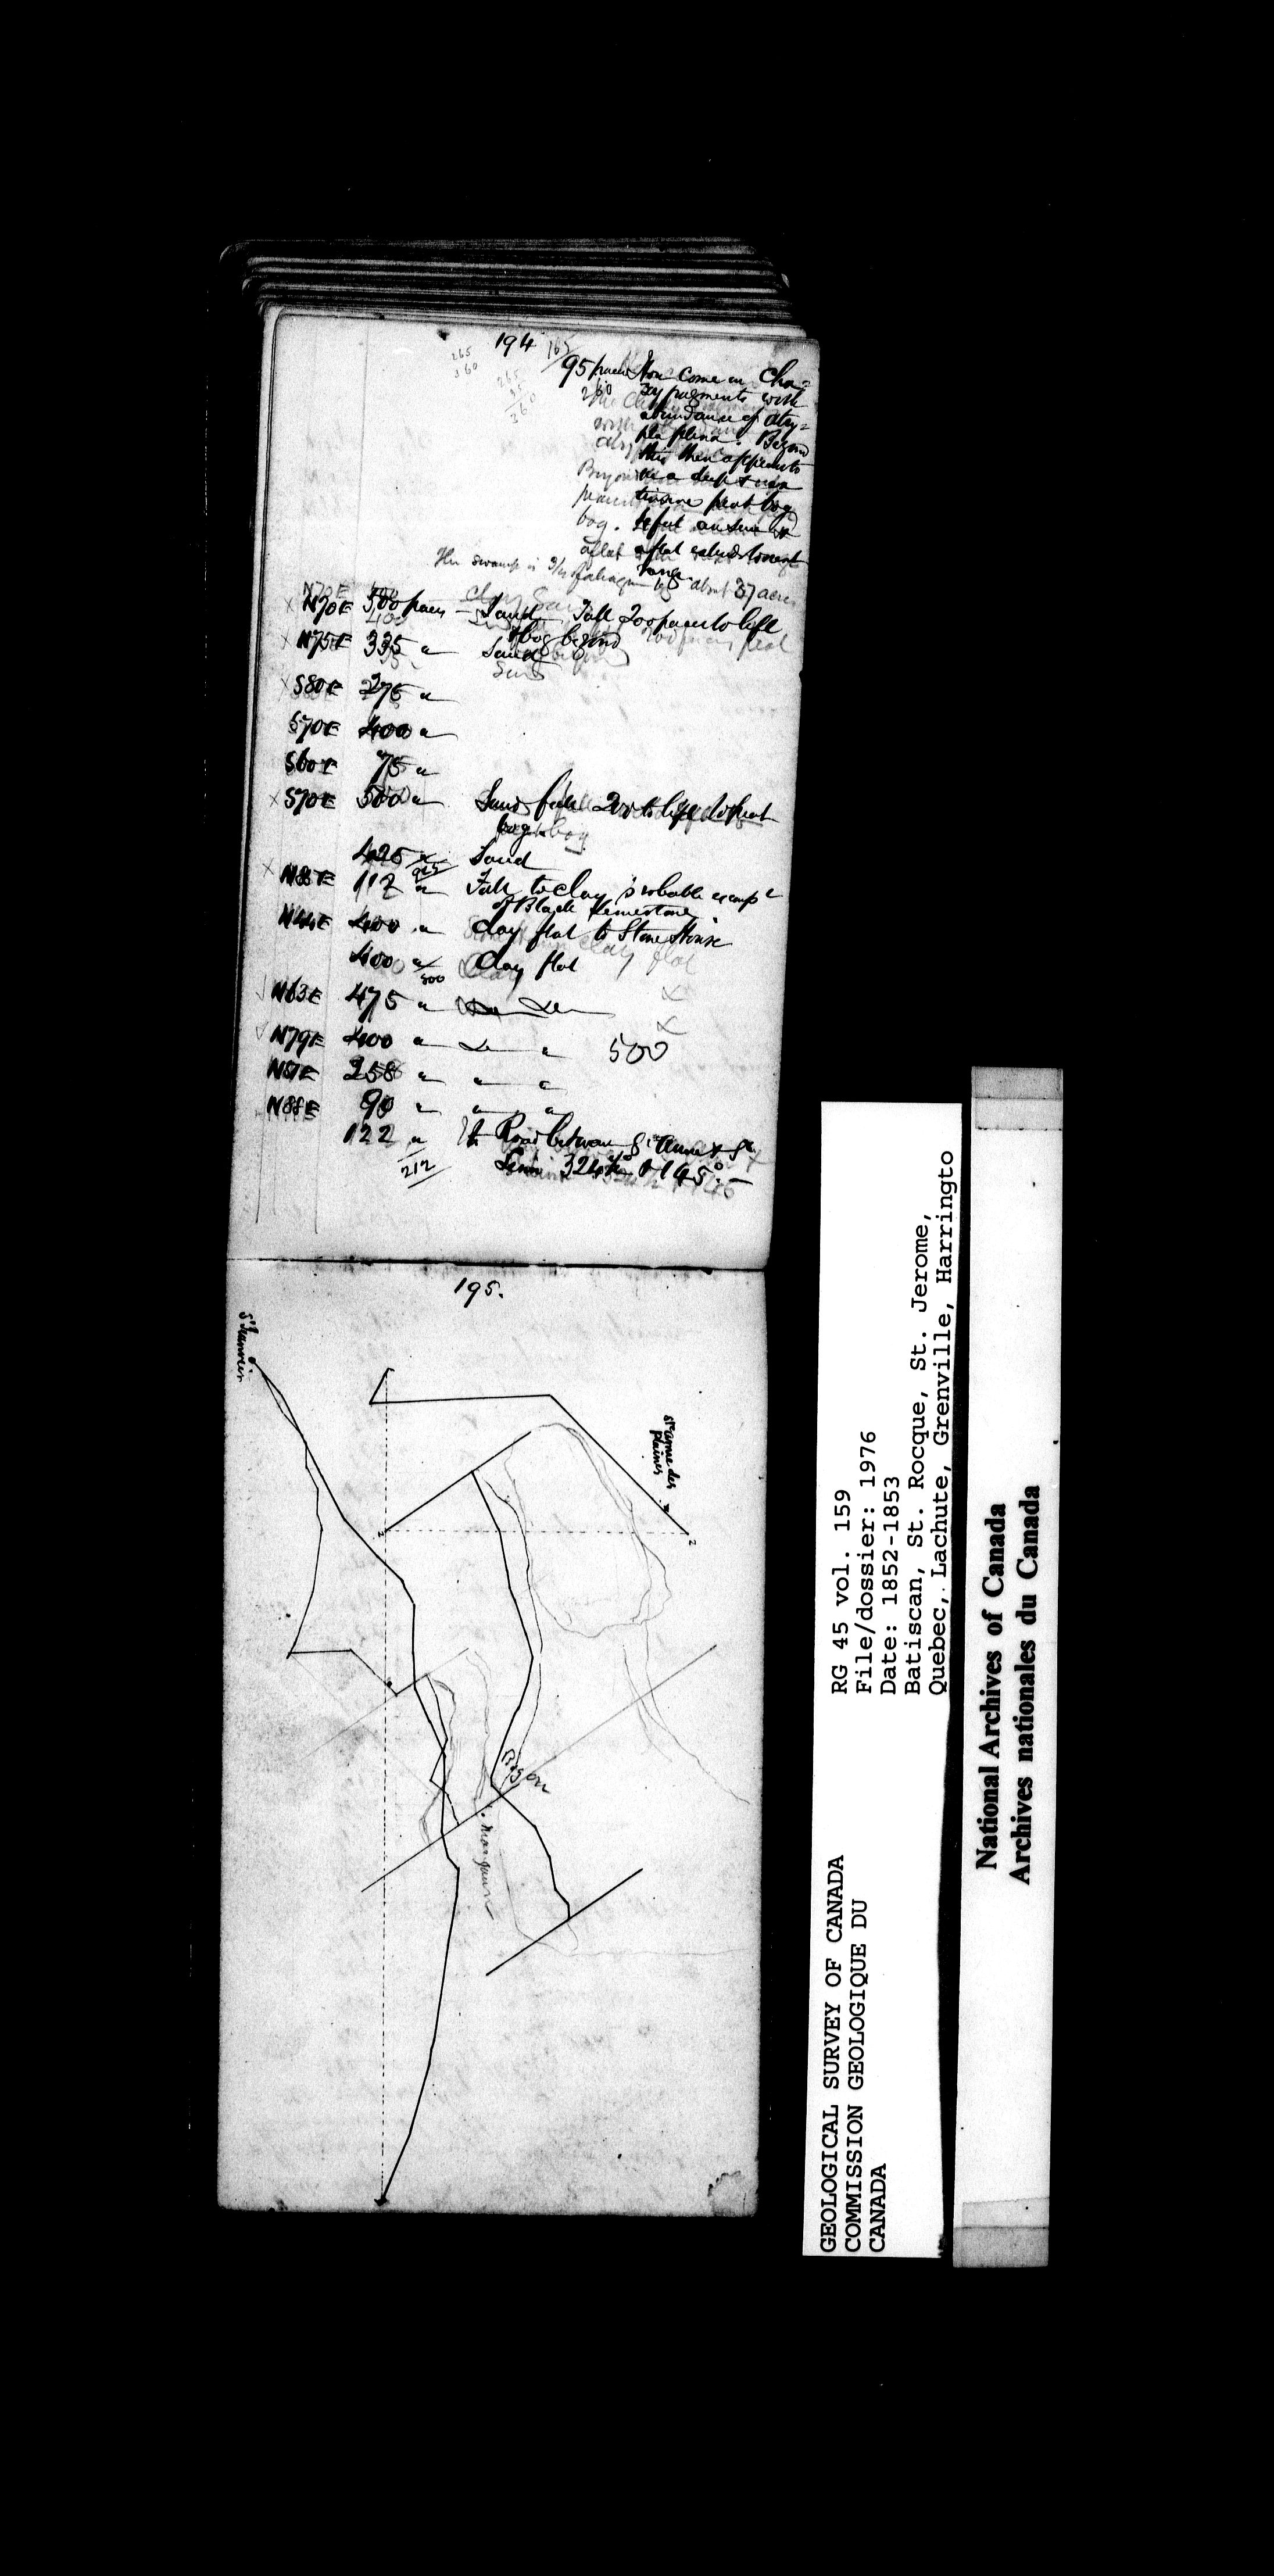 194
165
265
360
265
95
360
95 paces Now come on Cha=
260 zy fragments with
abundance of Atry=
pa plena. Beyond
this then appears
a deep &
peat bog
bog.
a flat
range
The swamp is 3/4 of about 37 acres
N70E 500 paces — Sand Fall 200 paces to left
& bog beyond
N75E 335 " Sand
S80E 275 "
S70E 400 "
S60E 75 "
S70E 500 " Sand fall 200 to left to peat
bog
425 " Sand
925
N88E 112 " Fall to clay probable escarp
of Black limestone
N44E 400 " Clay flat to Stone House
400 " Clay flat
800
N63E 475 "
N79E 400 " " 500
N81E 258 " " "
N88E 90 " " "
122 " To Road between St Anne & St
212
195.
St Janvier
Ste anne des
plaines
Bryson
Morgan
RG 45 vol. 159
File/dossier: 1976
Date: 1852-1853
Batiscan, St. Rocque, St. Jerome,
Quebec, Lachute, Grenville, Harringto
GEOLOGICAL SURVEY OF CANADA
COMMISSION GEOLOGIQUE DU
CANADA
National Archives of Canada
Archives nationales du Canada